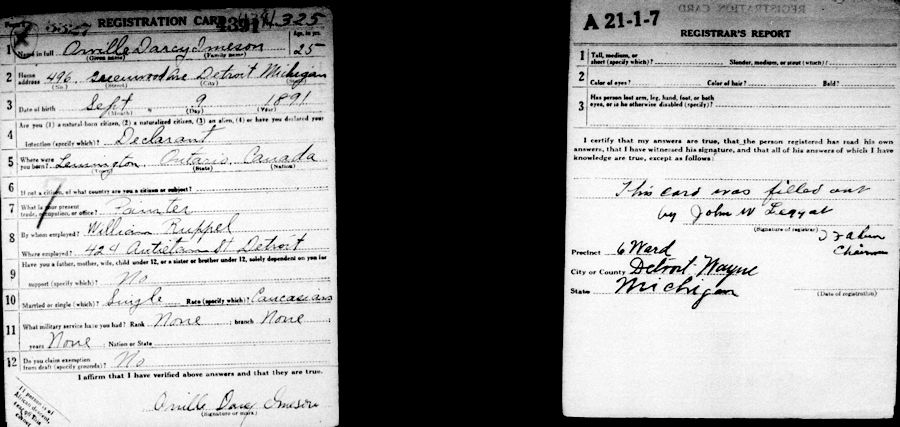 REGISTRATION CARD
4391
325
1 Name in full Orville Darcy Imeson Age, in yrs. 25
(Given name) (Family name)
2 Home address 496 Greenwood Ave Detroit Michigan
(No.) (Street) (City) (State)
3 Date of birth Sept 9 1891
(Month) (Day) (Year)
Are you (1) a natural-born citizen, (2) a naturalized citizen, (3) an alien, (4) or have you declared your
4 intention (specify which)? Declarant
5 Where were you born? Ontario Canada
(Town) (State) (Nation)
6 If not a citizen, of what country are you a citizen or subject?
7 What is your present trade, occupation, or office? Painter
8 By whom employed? William Ruppel
Where employed? 424 Antietam St Detroit
9 Have you a father, mother, wife, child under 12, or a sister or brother under 12, solely dependent on you for
support (specify which)? No
10 Married or single (which)? Single Race (specify which)? Caucasian
11 What military service have you had? Rank None ; branch None ;
years None ; Nation or State
12 Do you claim exemption from draft (specify grounds)? No
I affirm that I have verified above answers and that they are true.
Orville Darcy Imeson
(Signature or mark)
If person is of
African descent,
corner
REGISTRATION CARD
A 21-1-7
REGISTRAR'S REPORT
1 Tall, medium, or short (specify which)? Slender, medium, or stout (which)?
2 Color of eyes? Color of hair? Bald?
3 Has person lost arm, leg, hand, foot, or both eyes, or is he otherwise disabled (specify)?
I certify that my answers are true, that the person registered has read his own
answers, that I have witnessed his signature, and that all of his answers of which I have
knowledge are true, except as follows:
This card was filled out
by John W Leggat
(Signature of registrar)
Chairman
Precinct 6 Ward
City or County Detroit Wayne
State Michigan
(Date of registration)